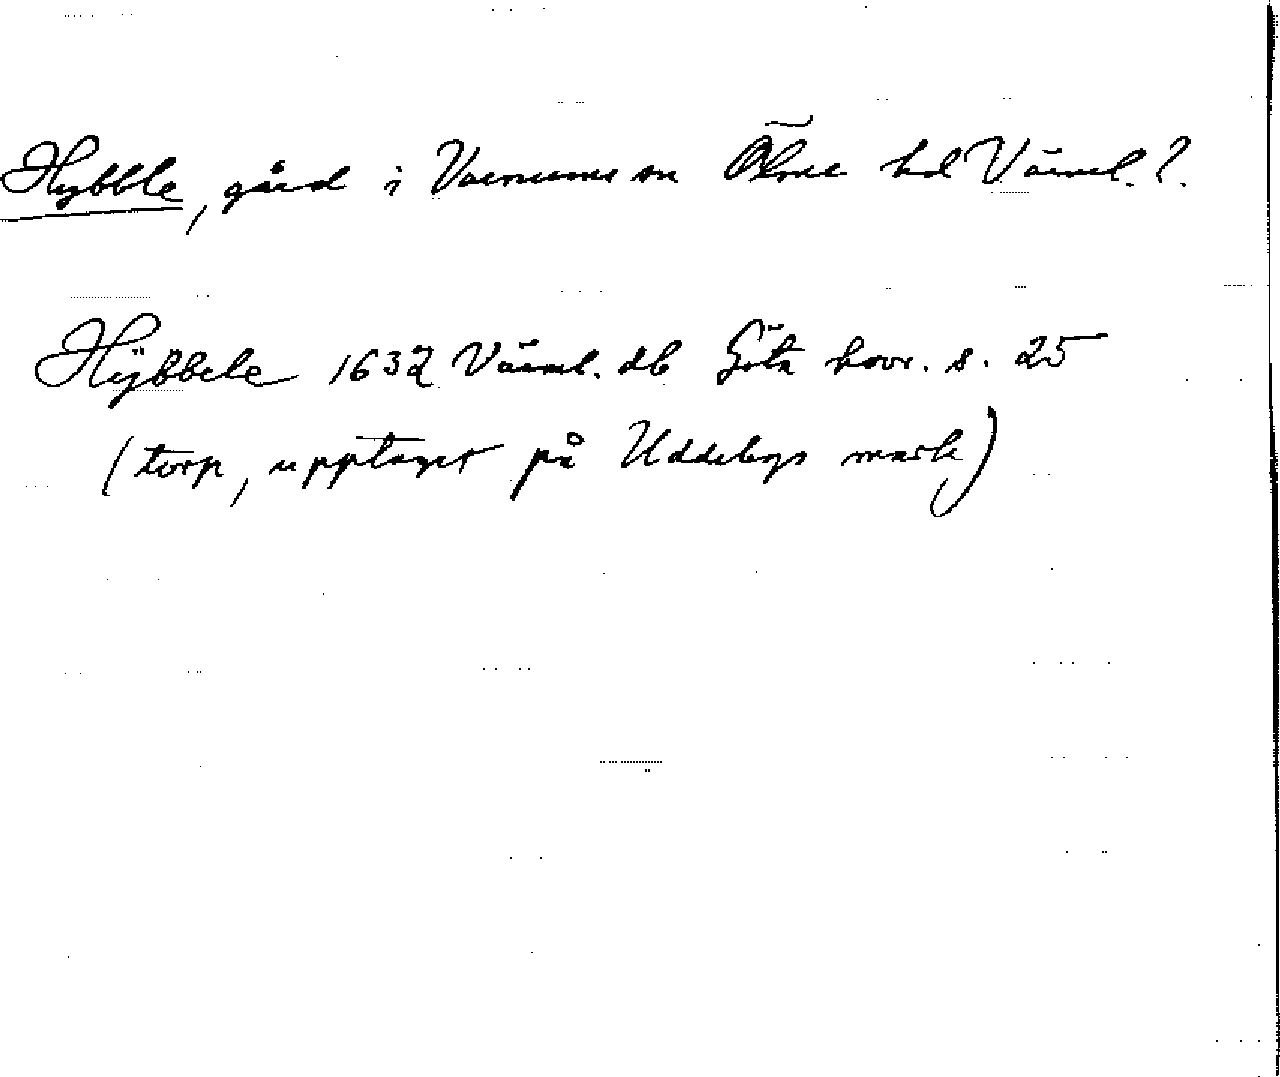 Hybble, gård i Varnums sn Ölme hd Värml.?
Hÿbbele 1632 Värml. db Göta hovr. s. 25
(torp, upptaget på Uddebys mark)